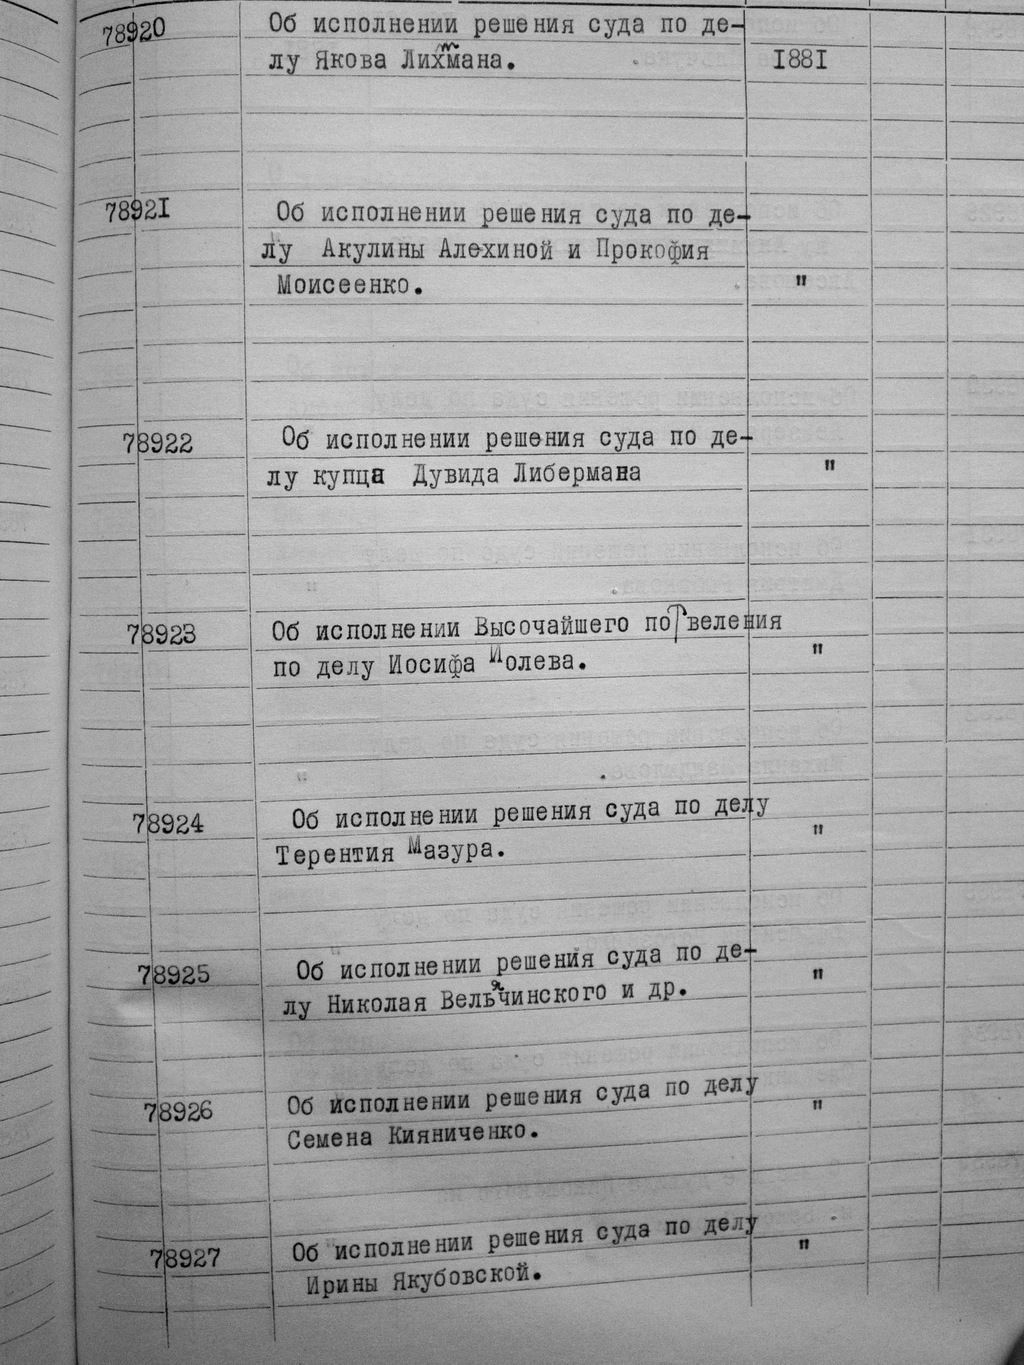 78920 Об исполнении решения суда по де-
лу Якова Лихтмана. 1881
78921 Об исполнении решения суда по де-
лу Акулины Алехиной и Прокофия
Моисеенко. "
78922 Об исполнении решения суда по де-
лу купца Дувида Либермана "
78923 Об исполнении Высочайшего повеления
по делу Иосифа Иолева. "
78924 Об исполнении решения суда по делу
Терентия Мазура. "
78925 Об исполнении решения суда по де-
лу Николая Вельячинского и др. "
78926 Об исполнении решения суда по делу
Семена Кияниченко. "
78927 Об исполнении решения суда по делу
Ирины Якубовской. "